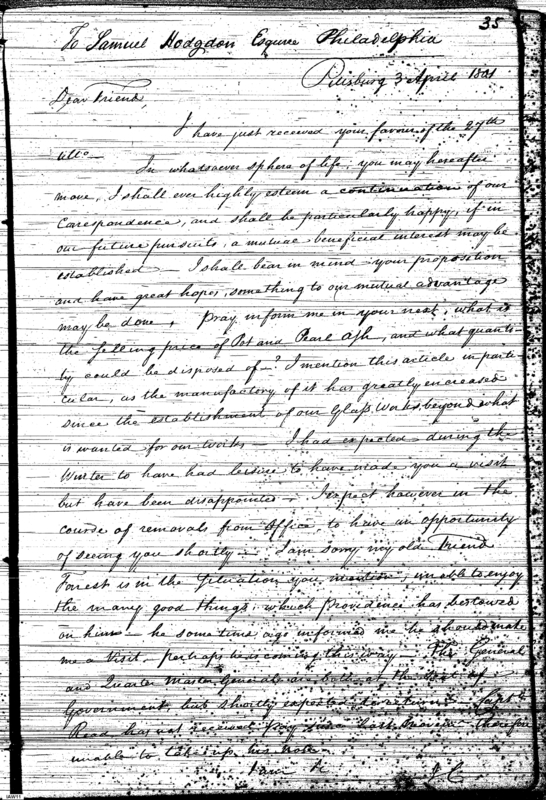 35
To Samuel Hodgdon Esquire Philadelphia
Pittsburg 3 April 1801
Dear Friend
I have just received your favour of the 27th
ulto— In whatsoever sphere of life, you may hereafter
move, I shall ever highly esteem a continuation of our
Correspondence, and shall be particularly happy, if in
our future pursuits, a mutual beneficial interest may be
established— I shall bear in mind your proposition
and have great hopes, something to our mutual advantage
may be done, Pray inform me in your next, what is
the selling price of Pot and Pearl Ash, and what quanti-
ty could be disposed of—? I mention this article in parti
cular, as the manufactory of it has greatly encreased
since the establishment of our Glass Works, beyond what
is wanted for our works— I had expected during the
Winter to have had leisure to have made you a visit
but have been disappointed— I expect however in the
course of removals from Office, to have an opportunity
of seeing you shortly— I am sorry my old Friend
Forest is in the situation you mention, unable to enjoy
the many good things, which providence has bestowed
on him— he some time ago informed me he should make
me a Visit, perhaps he is coming this way— The General
and Quarter Master General are both at the Seat of
Government, but shortly expected to return— Capt.
Read has not received pay since last therefore
unable to take up his note—
I am &
J C